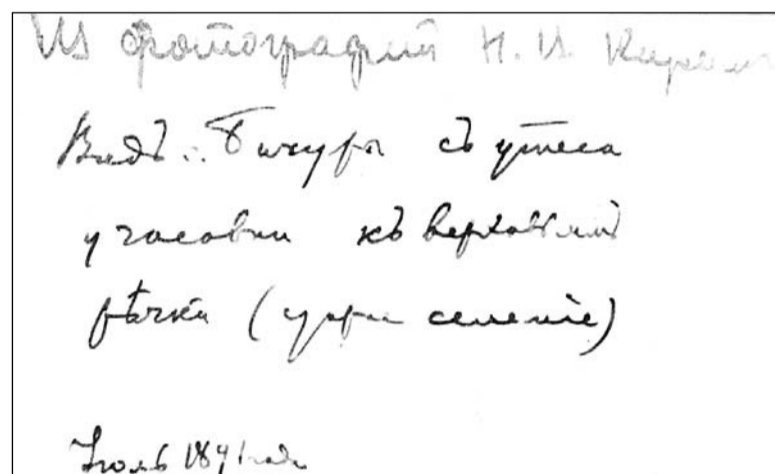 Из фотографий Н. И.
Видъ Бичуры съ утеса
у часовни къ верховьямъ
рѣчки ( селеніе)
Іюль 1891 года